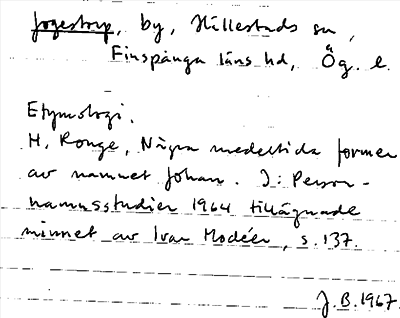 Jogestorp, by, Hällestads sn,
Finspånga läns hd, Ög. l.
Etymologi.
H. Ronge, Några medeltida former
av namnet Johan. I: Person-
namnsstudier 1964 tillägnade
minnet av Ivar Modéer, s. 137.
J.B. 1967.